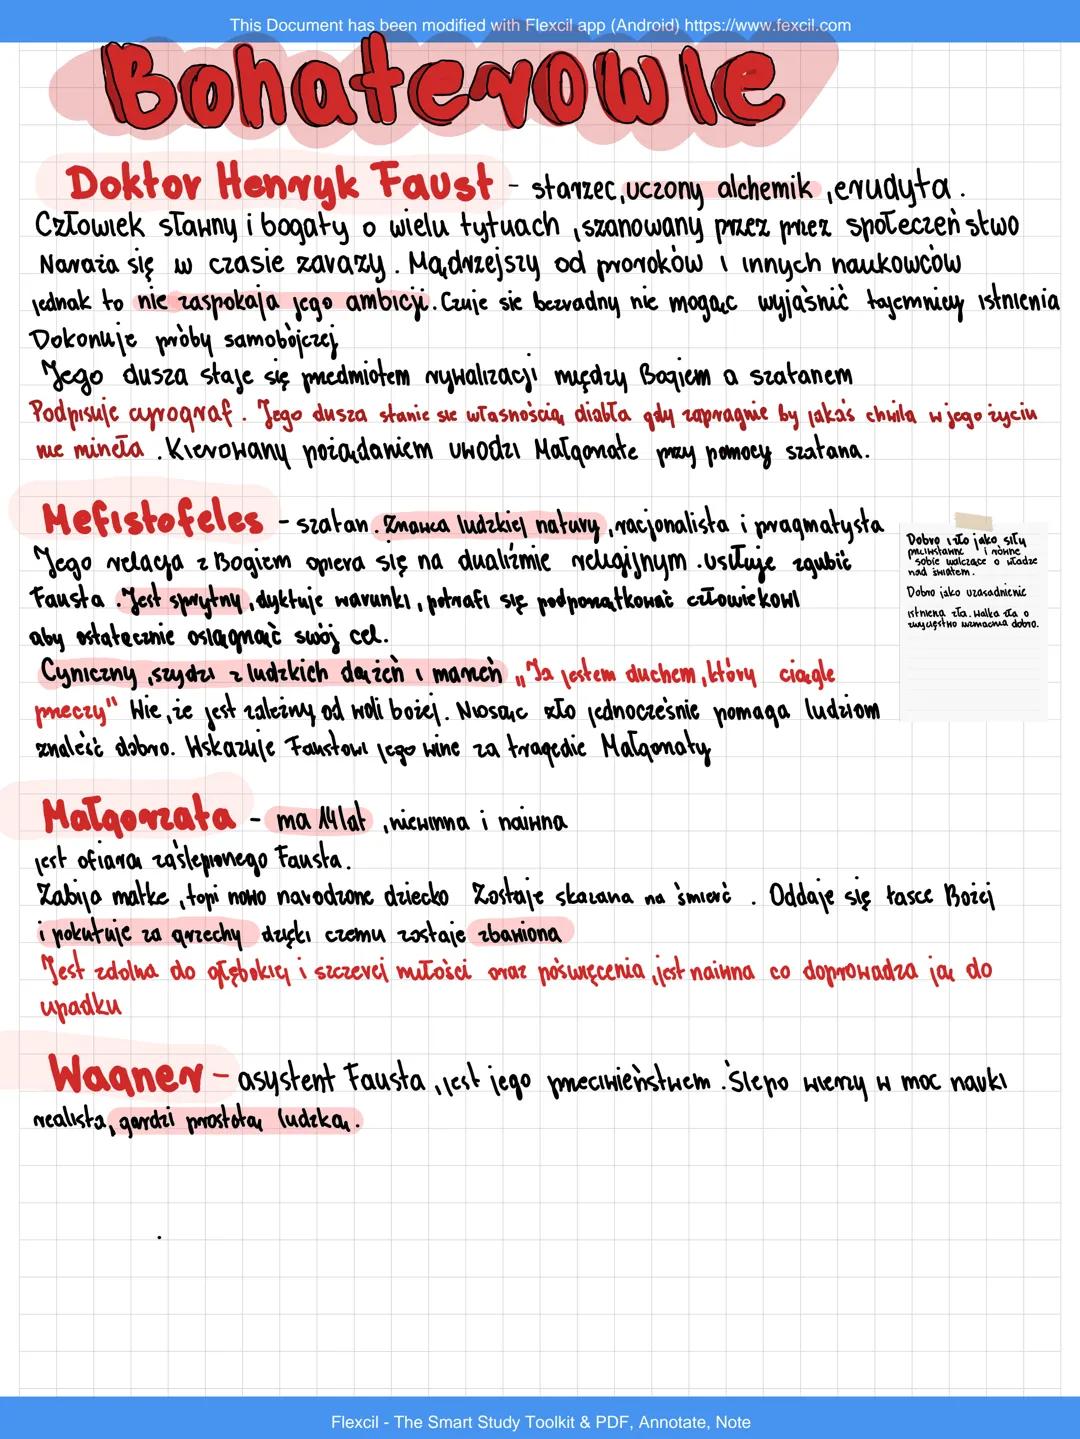 This Document has been modified with Flexcil app (Android) https://www.fexcil.com
Bohaterowie
Doktor Henryk Faust - starzec, uczony alchemik, erudyta.
Człowiek sławny i bogaty o wielu tytuach, szanowany przez przez społeczeństwo
Naraża się w czasie zarazy. Mądrzejszy od proroków i innych naukowców
jednak to nie zaspokaja jego ambicji. Czuje sie bezradny nie mogąc wyjaśnić tajemnicy istnienia
Dokonuje próby samobójczej
Jego dusza staje się przedmiotem rywalizacji między Bogiem a szatanem
Podpisuje cyrograf. Jego dusza stanie sie własnością diabła gdy zapragnie by jakaś chwila w jego życiu
nie mineła. Kierowany pożądaniem uwodzi Małgorzate przy pomocy szatana.
Mefistofeles - szatan. Znawca ludzkiej natury, racjonalista i pragmatysta
Jego relacja z Bogiem opiera się na dualiźmie religijnym. usiłuje zgubić
Fausta. Jest sprytny, dyktuje warunki, potrafi się podporządkować człowiekowi
aby ostatecznie osiągnąć swój cel.
Cyniczny, szydzi z ludzkich dążeń i marzeń „Ja jestem duchem, który ciągle
przeczy" Wie, że jest zależny od woli bożej. Niosąc zło jednocześnie pomaga ludziom
znaleść dobro. Wskazuje Faustowi jego wine za tragedie Małgorzaty
Dobro i zło jako siły
przeciwstawne i równe
sobie walczące o władze
nad światem.
Dobro jako uzasadnienie
istnienia zła. Walka zła o
zwycięstwo wzmacnia dobro.
Małgorzata - ma 14 lat, niewinna i naiwna
jest ofiarą zaślepionego Fausta.
Zabija matke, topi nowo narodzone dziecko Zostaje skazana na śmierć. Oddaje się łasce Bożej
i pokutuje za grzechy dzięki czemu zostaje zbawiona
Jest zdolna do głębokiej i szczerej miłości oraz poświęcenia, jest naiwna co doprowadza ją do
upadku
Wagner - asystent Fausta, jest jego przeciwieństwem. Ślepo wierzy w moc nauki
realista, gardzi prostotą ludzką.
Flexcil - The Smart Study Toolkit & PDF, Annotate, Note